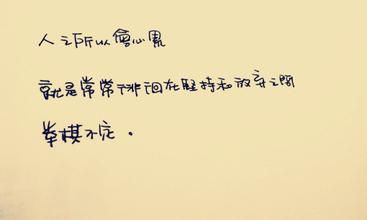 人之所以會心累
就是常常徘徊在堅持和放弃之間
舉棋不定。